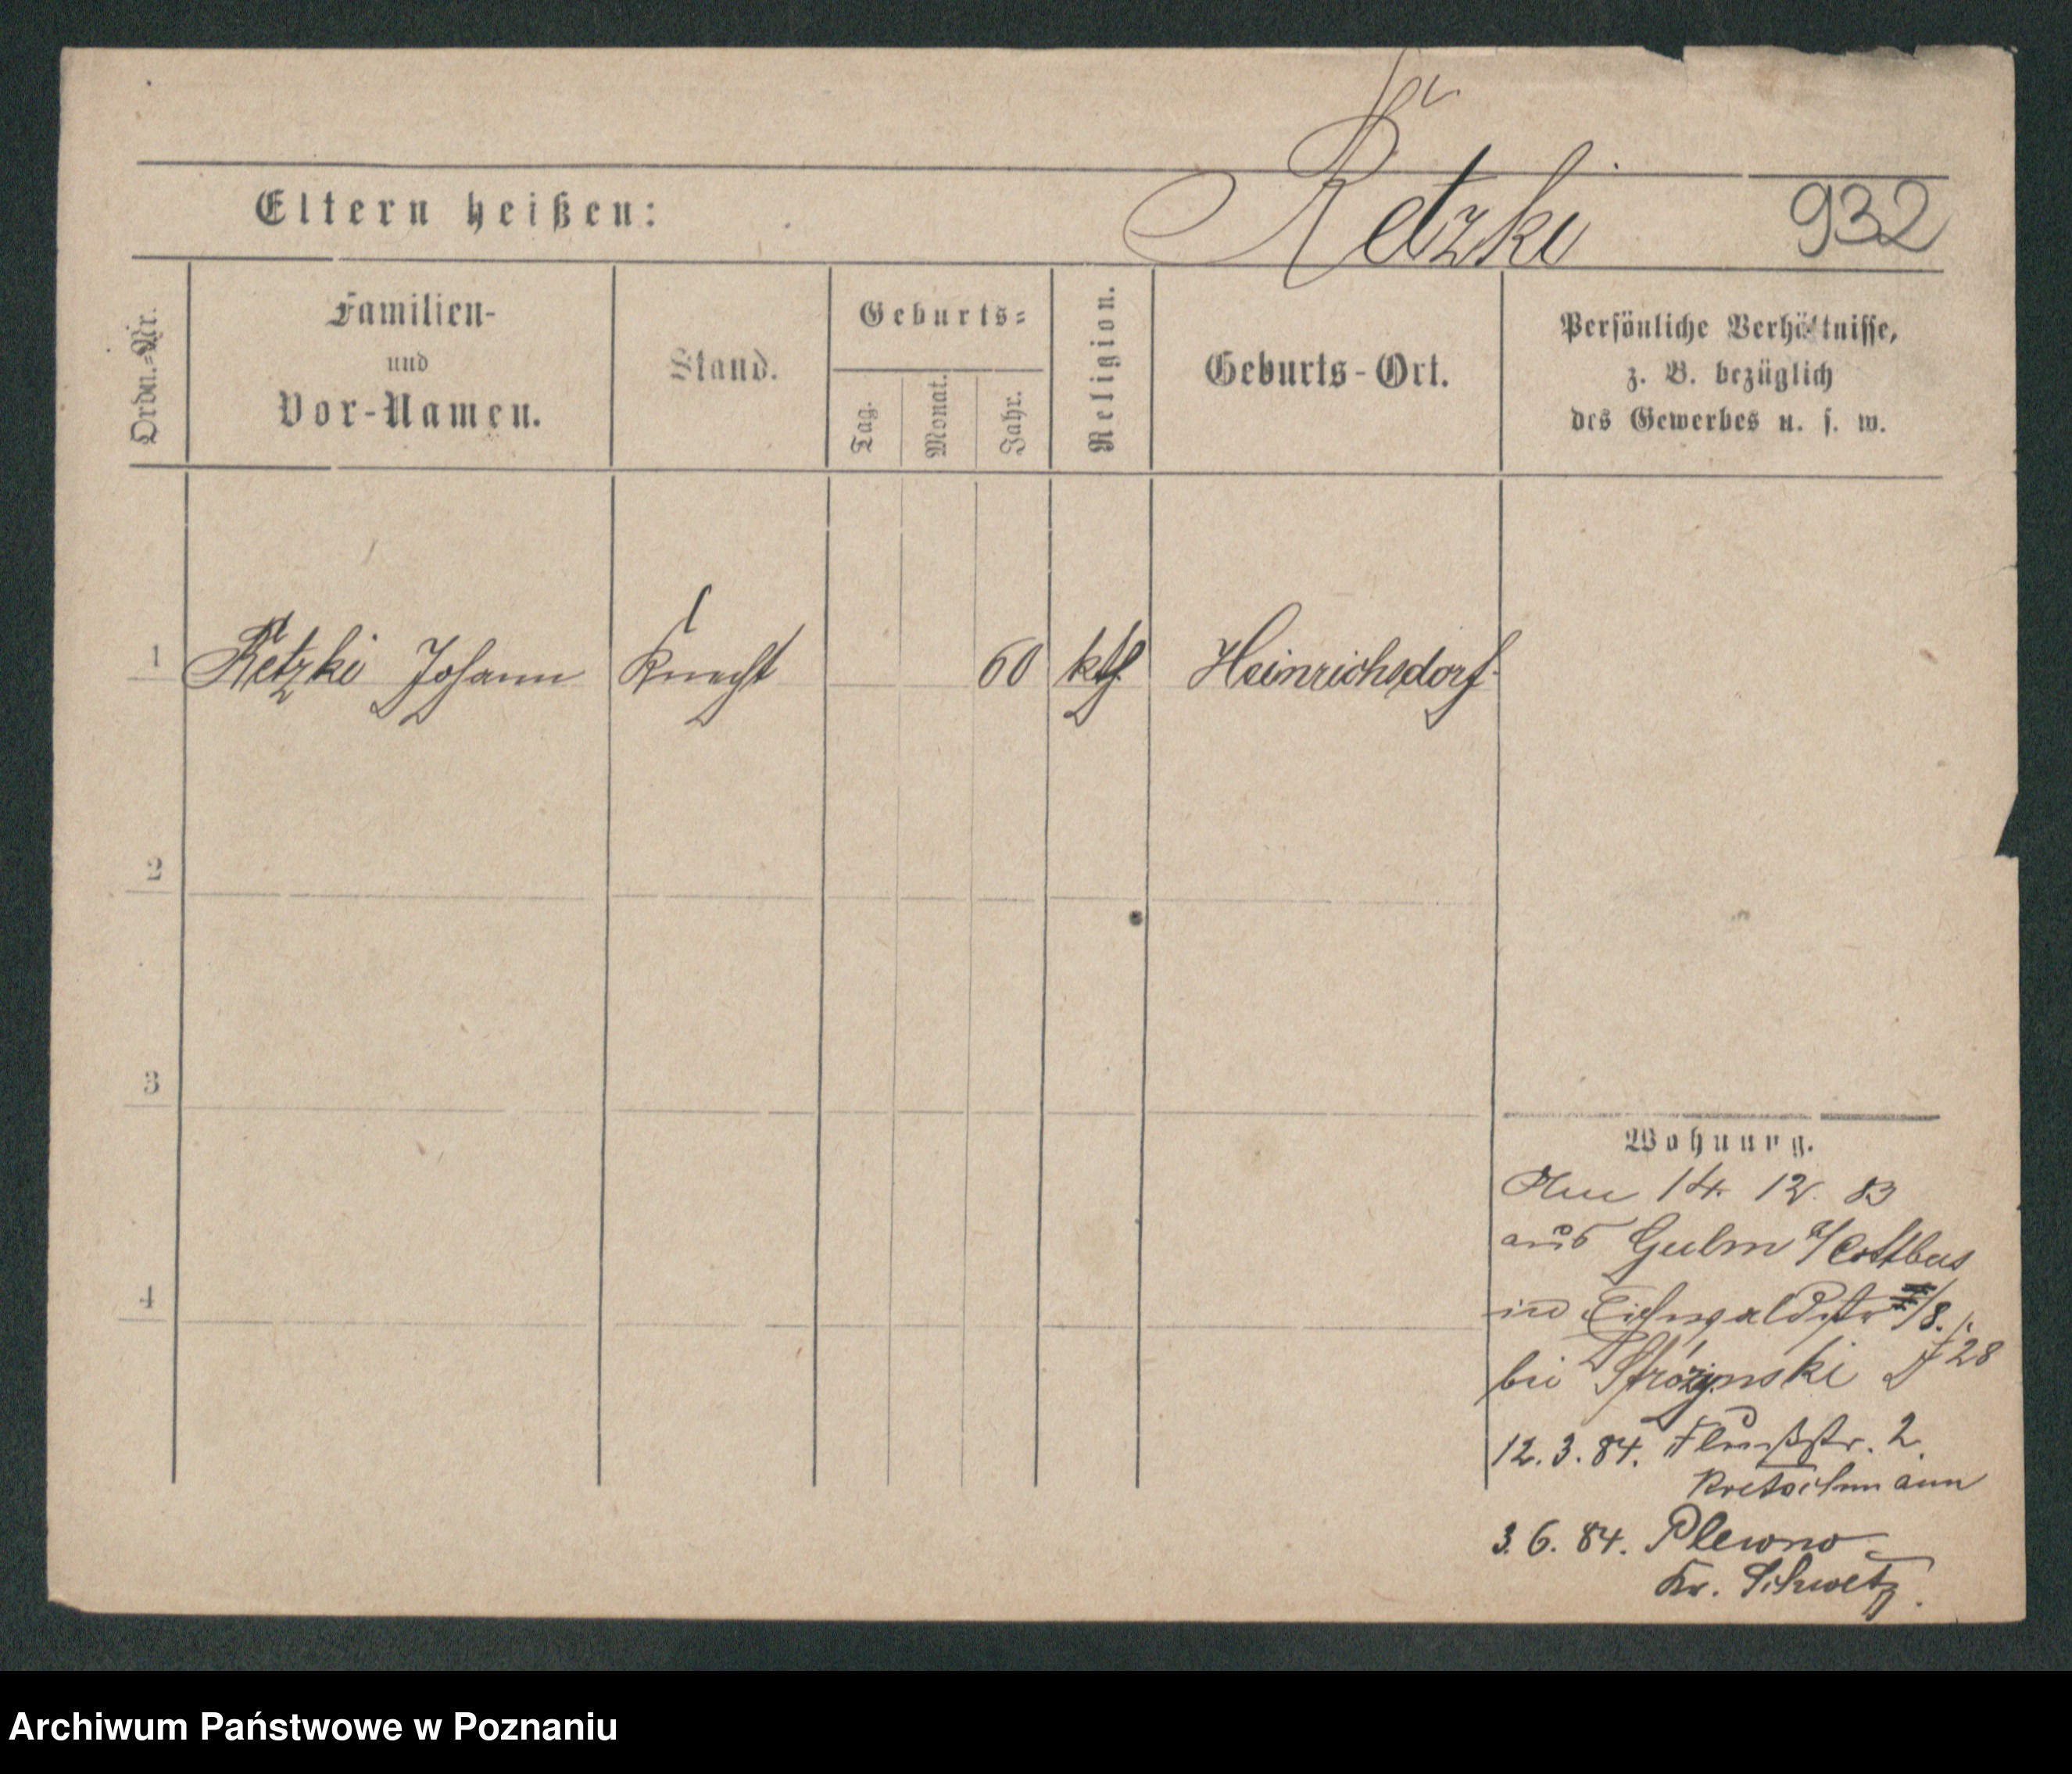 Eltern heißen: Retzki 932
Ordn.=Nr.
Familien-
und
Vor-Namen.
Stand.
Geburts=
Tag.
Monat.
Jahr.
Religion.
Geburts-Ort.
Persönliche Verhältnisse,
z. B. bezüglich
des Gewerbes u. s. w.
1 Retzki Johann Knecht 60 kth. Heinrichsdorf
2
3
4
Wohnung.
14. 12. 83
aus Gulm Cottbus
in Eichwaldstr /8.
bei Stróżynski 28
12. 3. 84. Flußstr. 2
Kretschmann
3. 6. 84. Plewno
Kr. Schwetz.
Archiwum Państwowe w Poznaniu